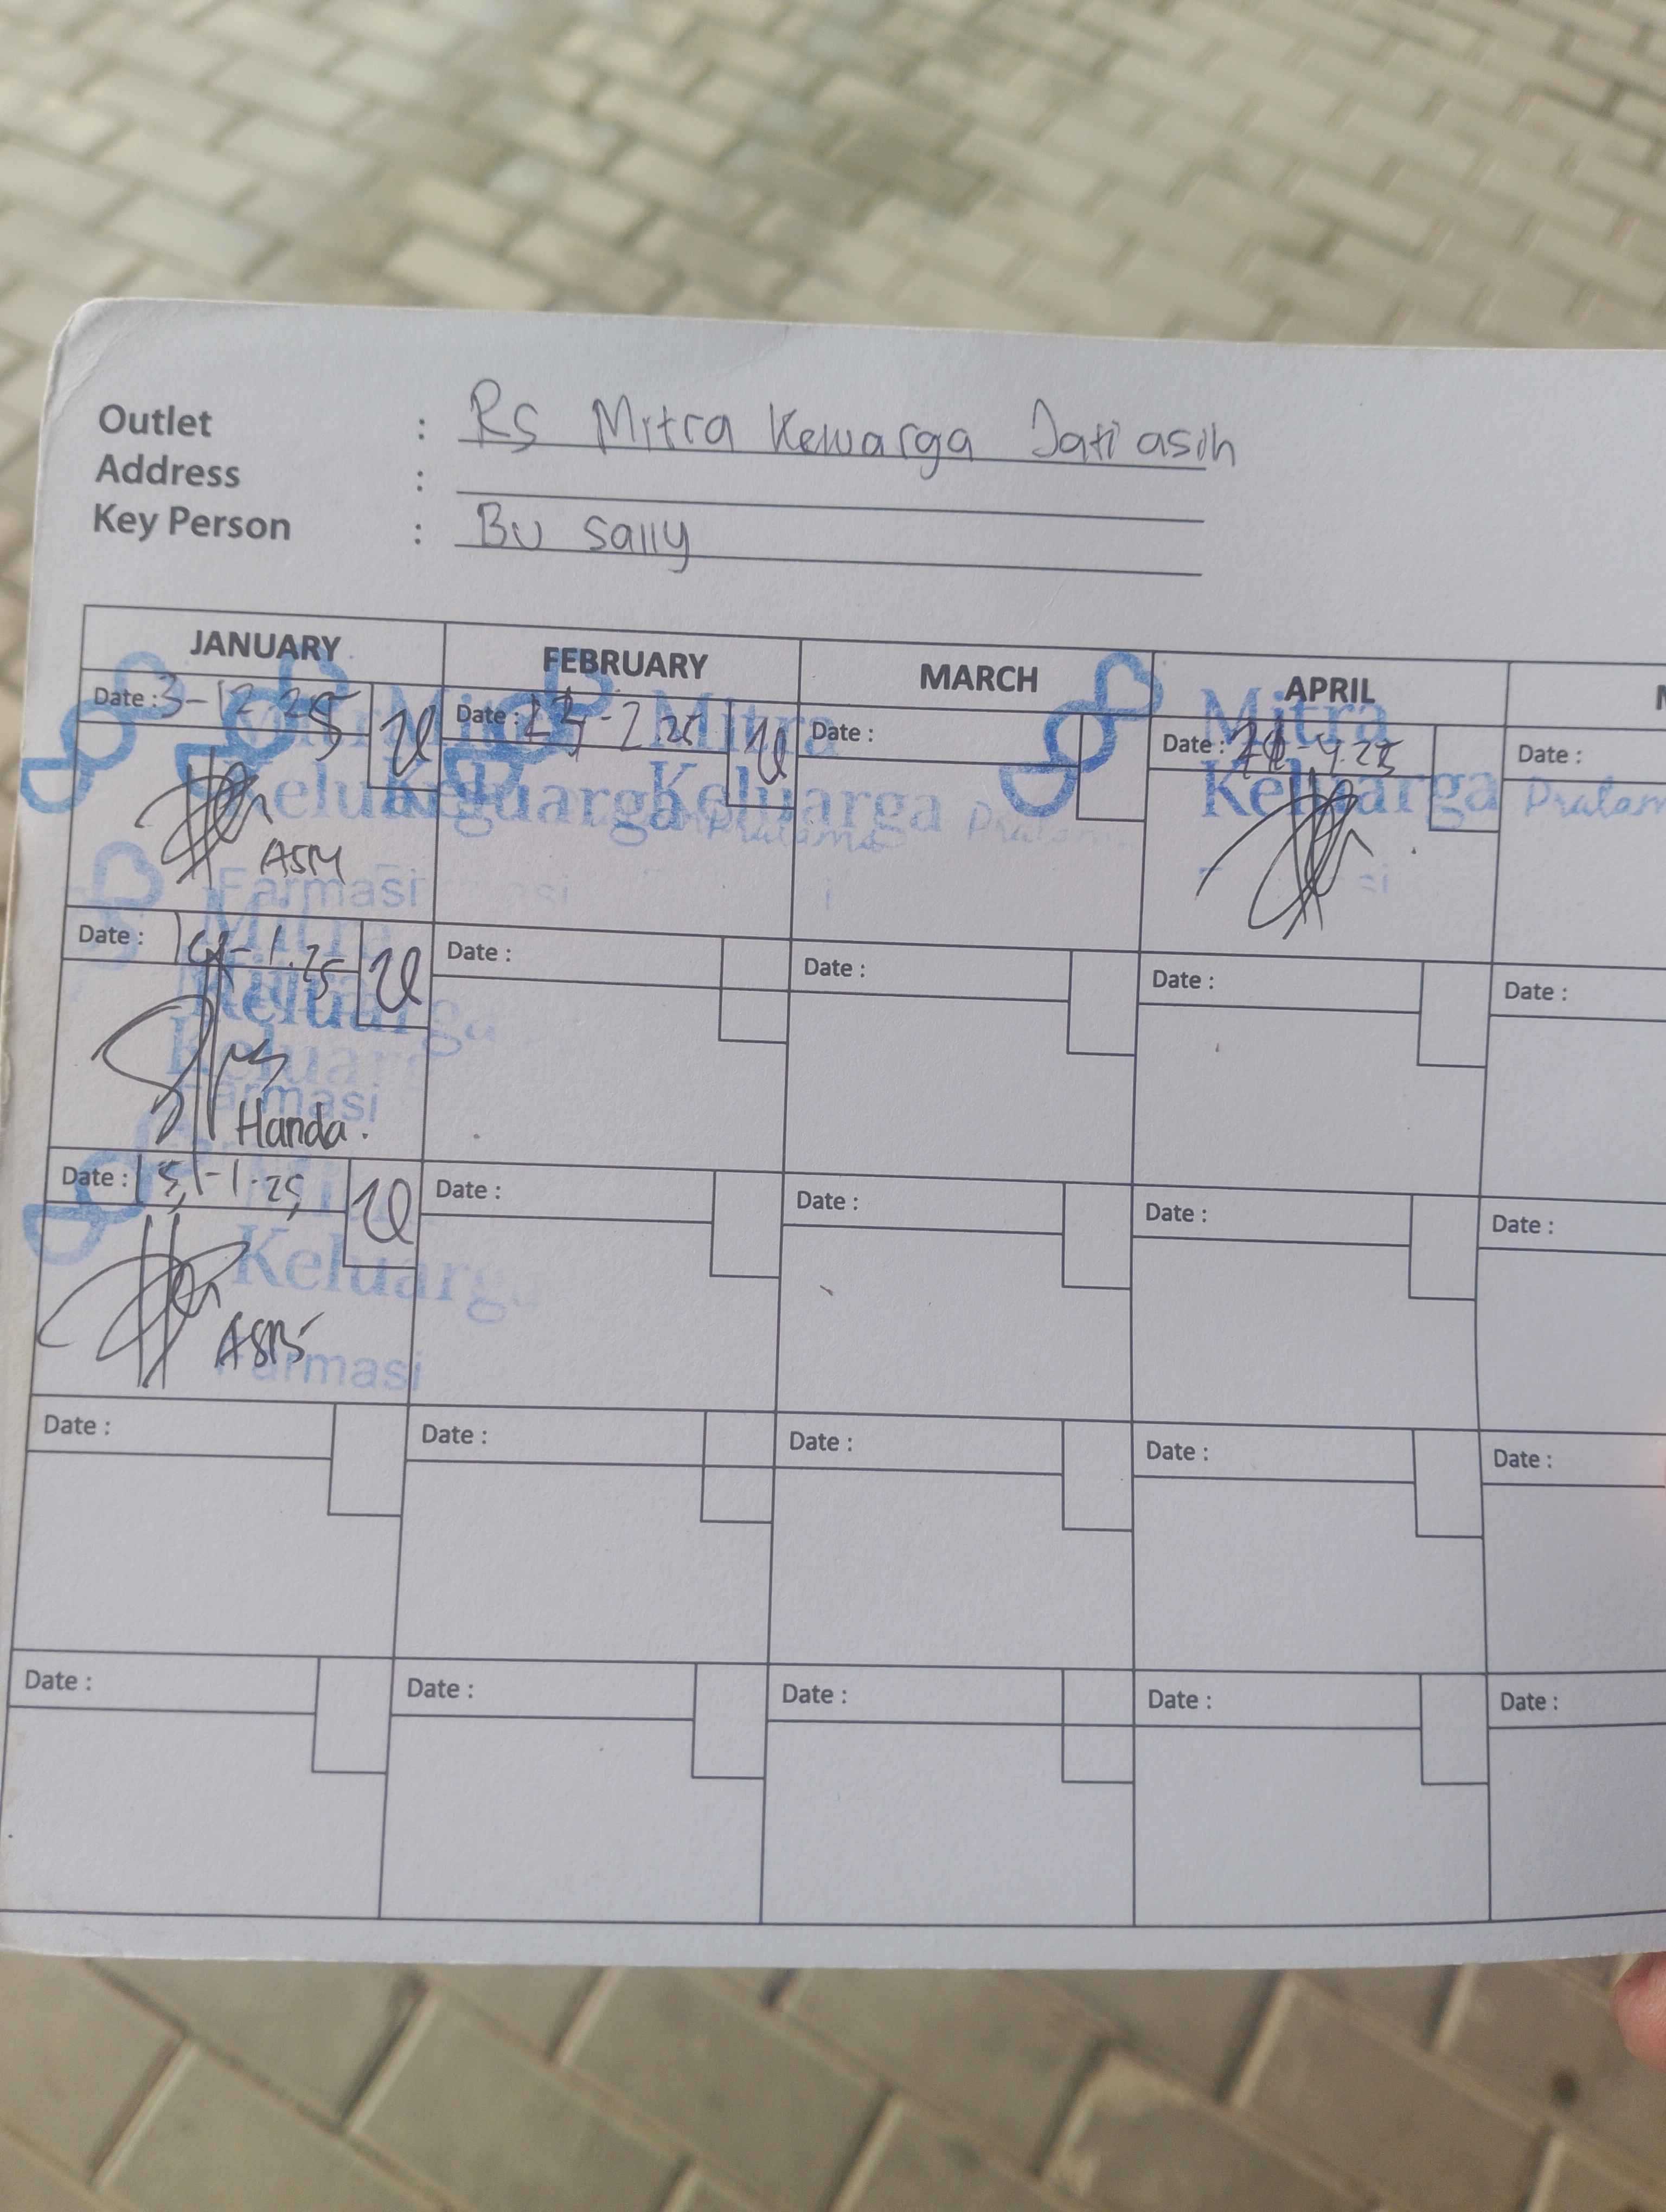 Outlet : Rs Mitra Keluarga Jatiasih
Address :
Key Person : Bu Sally
JANUARY FEBRUARY MARCH APRIL
Date : 3-12 25 Date : -2 25 Date : Date : -4.25 Date :
Mitra Mitra Mitra
Keluarga Keluarga Keluarga Pratama
ASM
Farmasi
Date : 14-1.25 Date : Date : Date : Date :
Mitra
Keluarga
Farmasi
Handa.
Date : 15-1-25 Date : Date : Date : Date :
Mitra
Keluarga
Farmasi
Date : Date : Date : Date : Date :
Date : Date : Date : Date : Date :